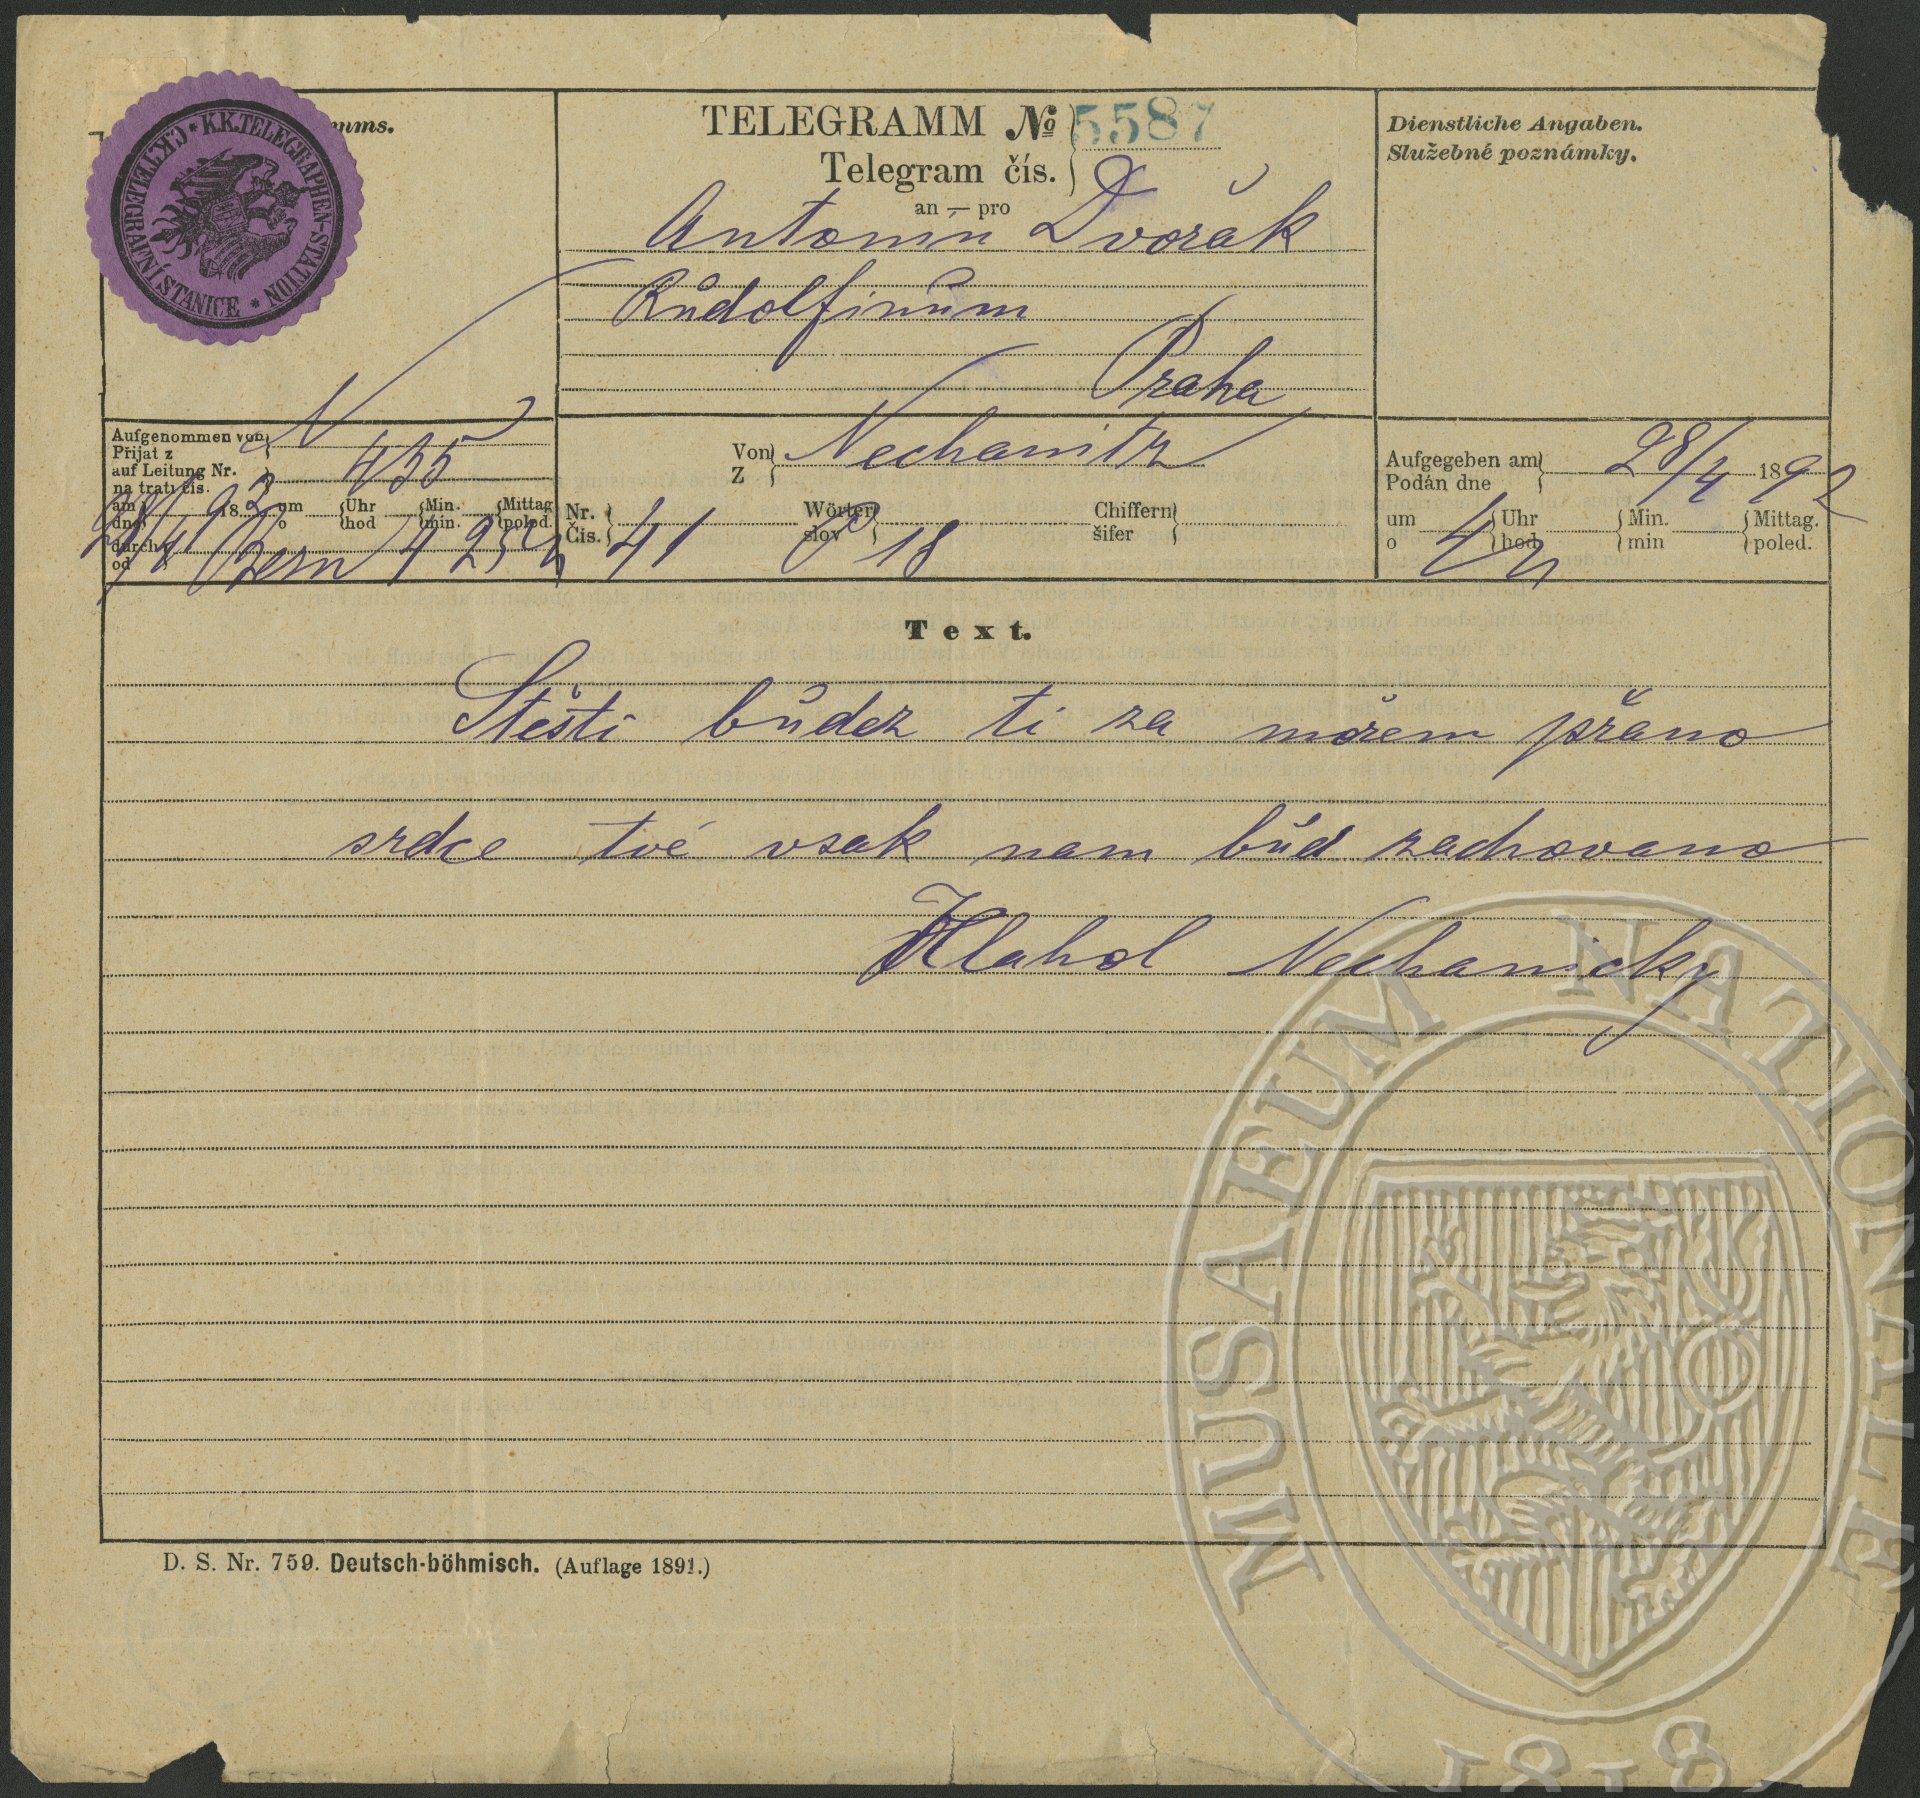 K.K.TELEGRAPHEN-STATION * CK.TELEGRAFNÍ STANICE *
mms.
TELEGRAMM No 5587
Telegram čís.
an — pro
Antonin Dvořák
Rudolfinum
Praha
Dienstliche Angaben.
Služebné poznámky.
Aufgenommen von
Přijat z
auf Leitung Nr. 455
na trati čís.
am 18 2 um Uhr Min. Mittag
dne o hod min. poled.
durch
od 4 25
Von Nechanitz
Z
Nr. Wörter Chiffern
Čis. 41 slov 18 šifer
Aufgegeben am 28/4 1892
Podán dne
um 4 Uhr Min. Mittag.
o hod min poled.
Text.
Štěstí budez ti za mořem přáno
srdce tvé vsak nam bud zachovano
Hlahol Nechanicky
D. S. Nr. 759. Deutsch-böhmisch. (Auflage 1891.)
MUSAEUM NATIONALE
1818